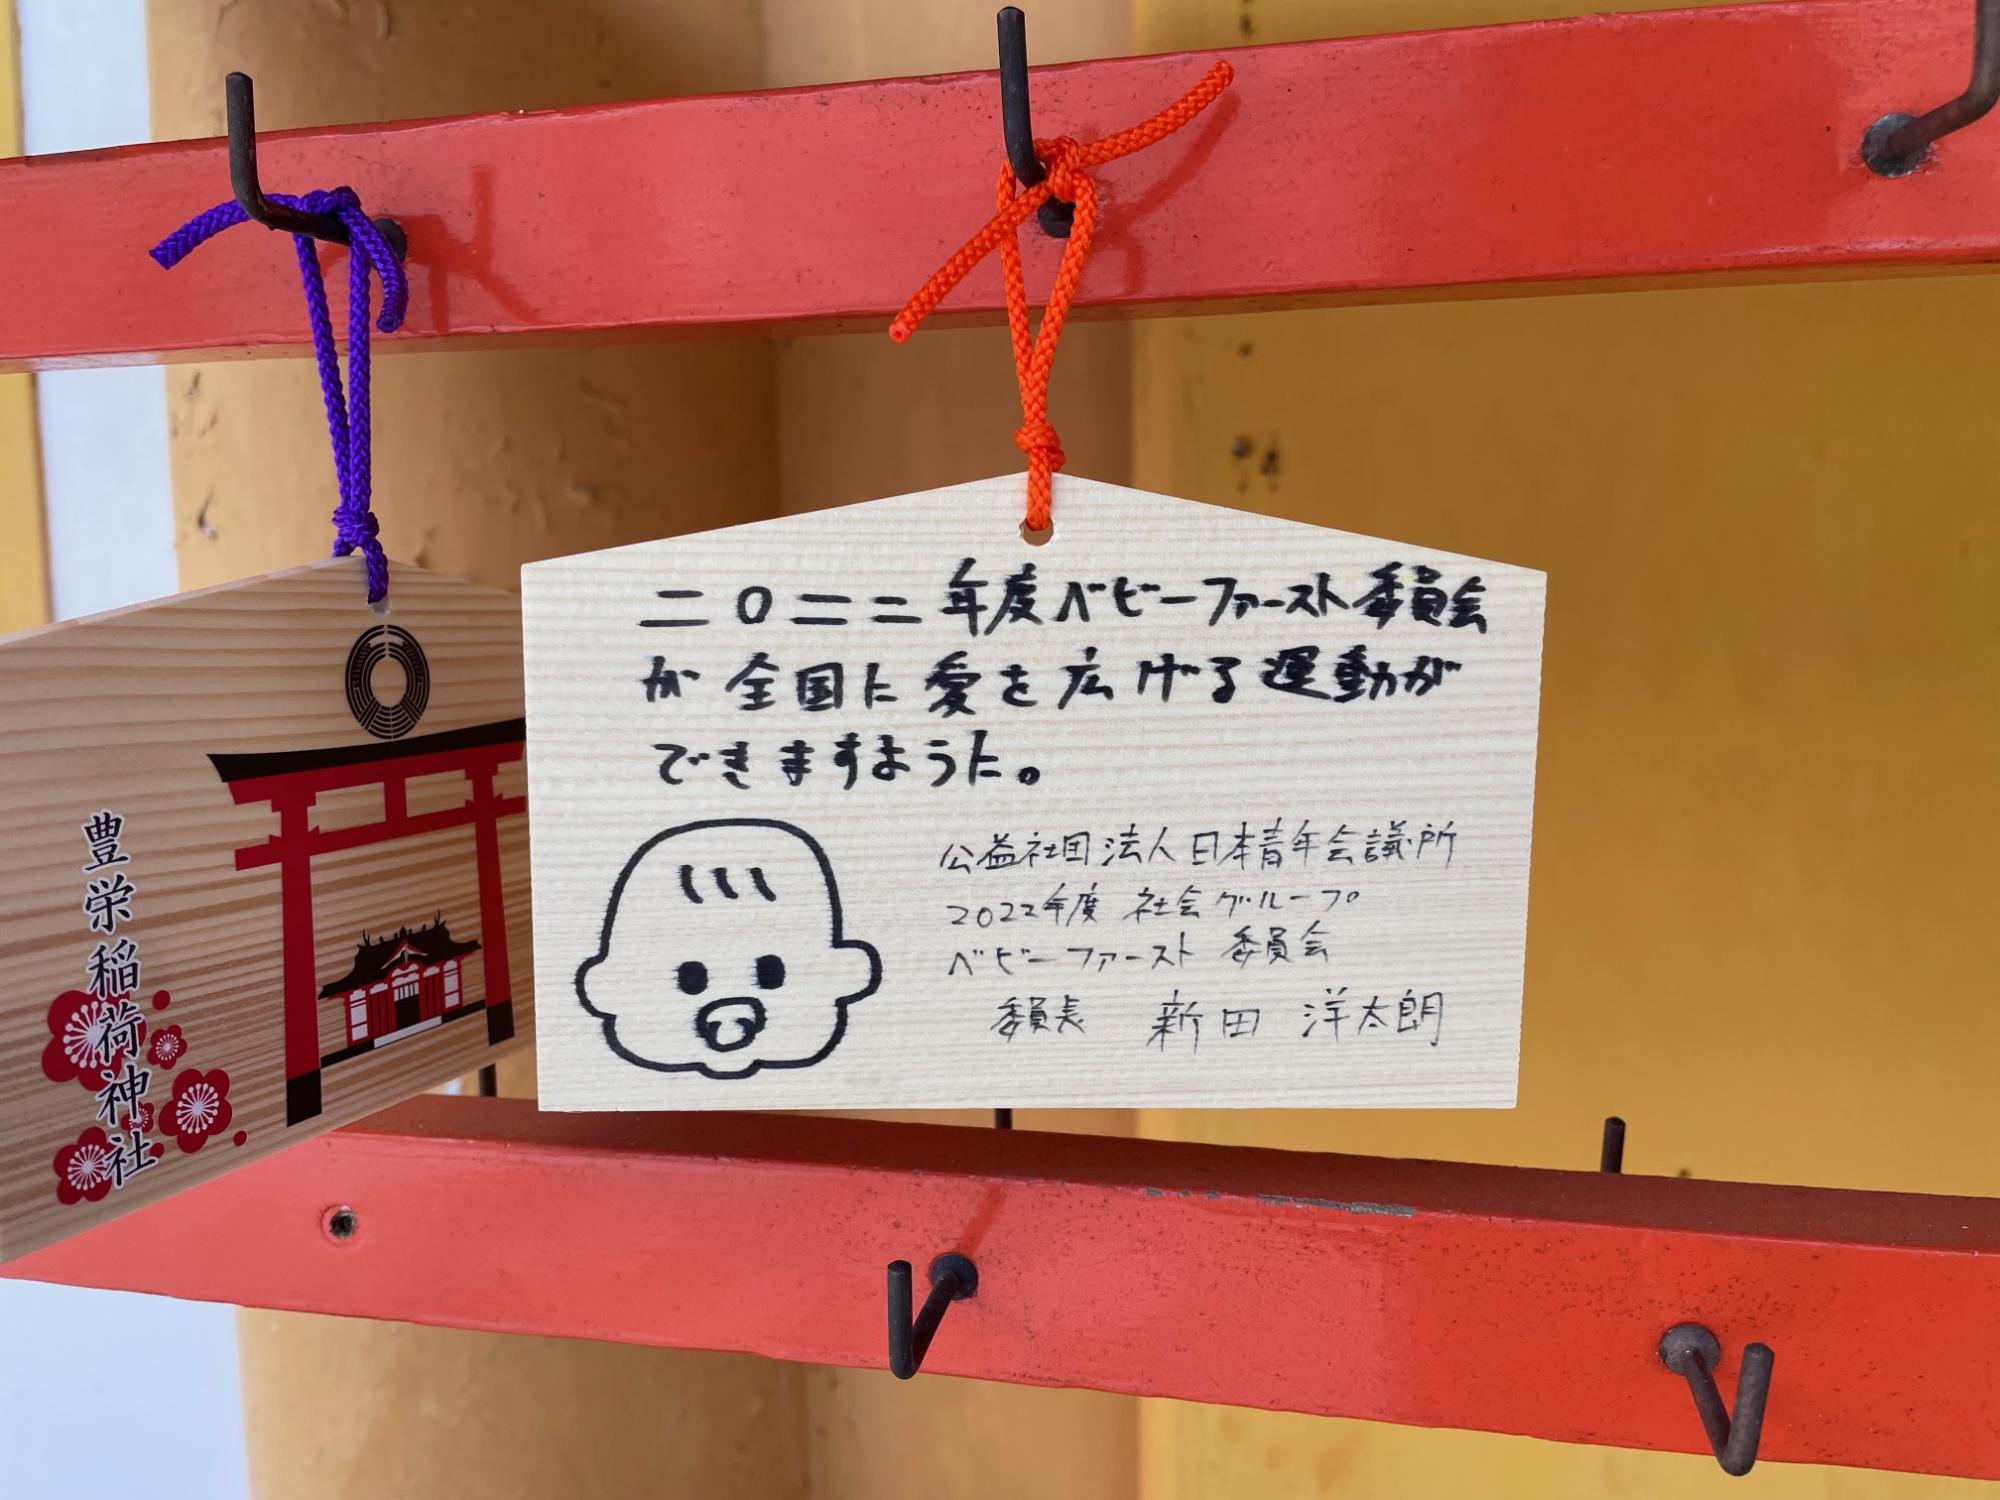 豊栄稲荷神社
二〇二二年度ベビーファースト委員会
が全国に愛を広げる運動が
できますように。
公益社団法人日本青年会議所
2022年度 社会グループ
ベビーファースト 委員会
委員長 新田 洋太朗